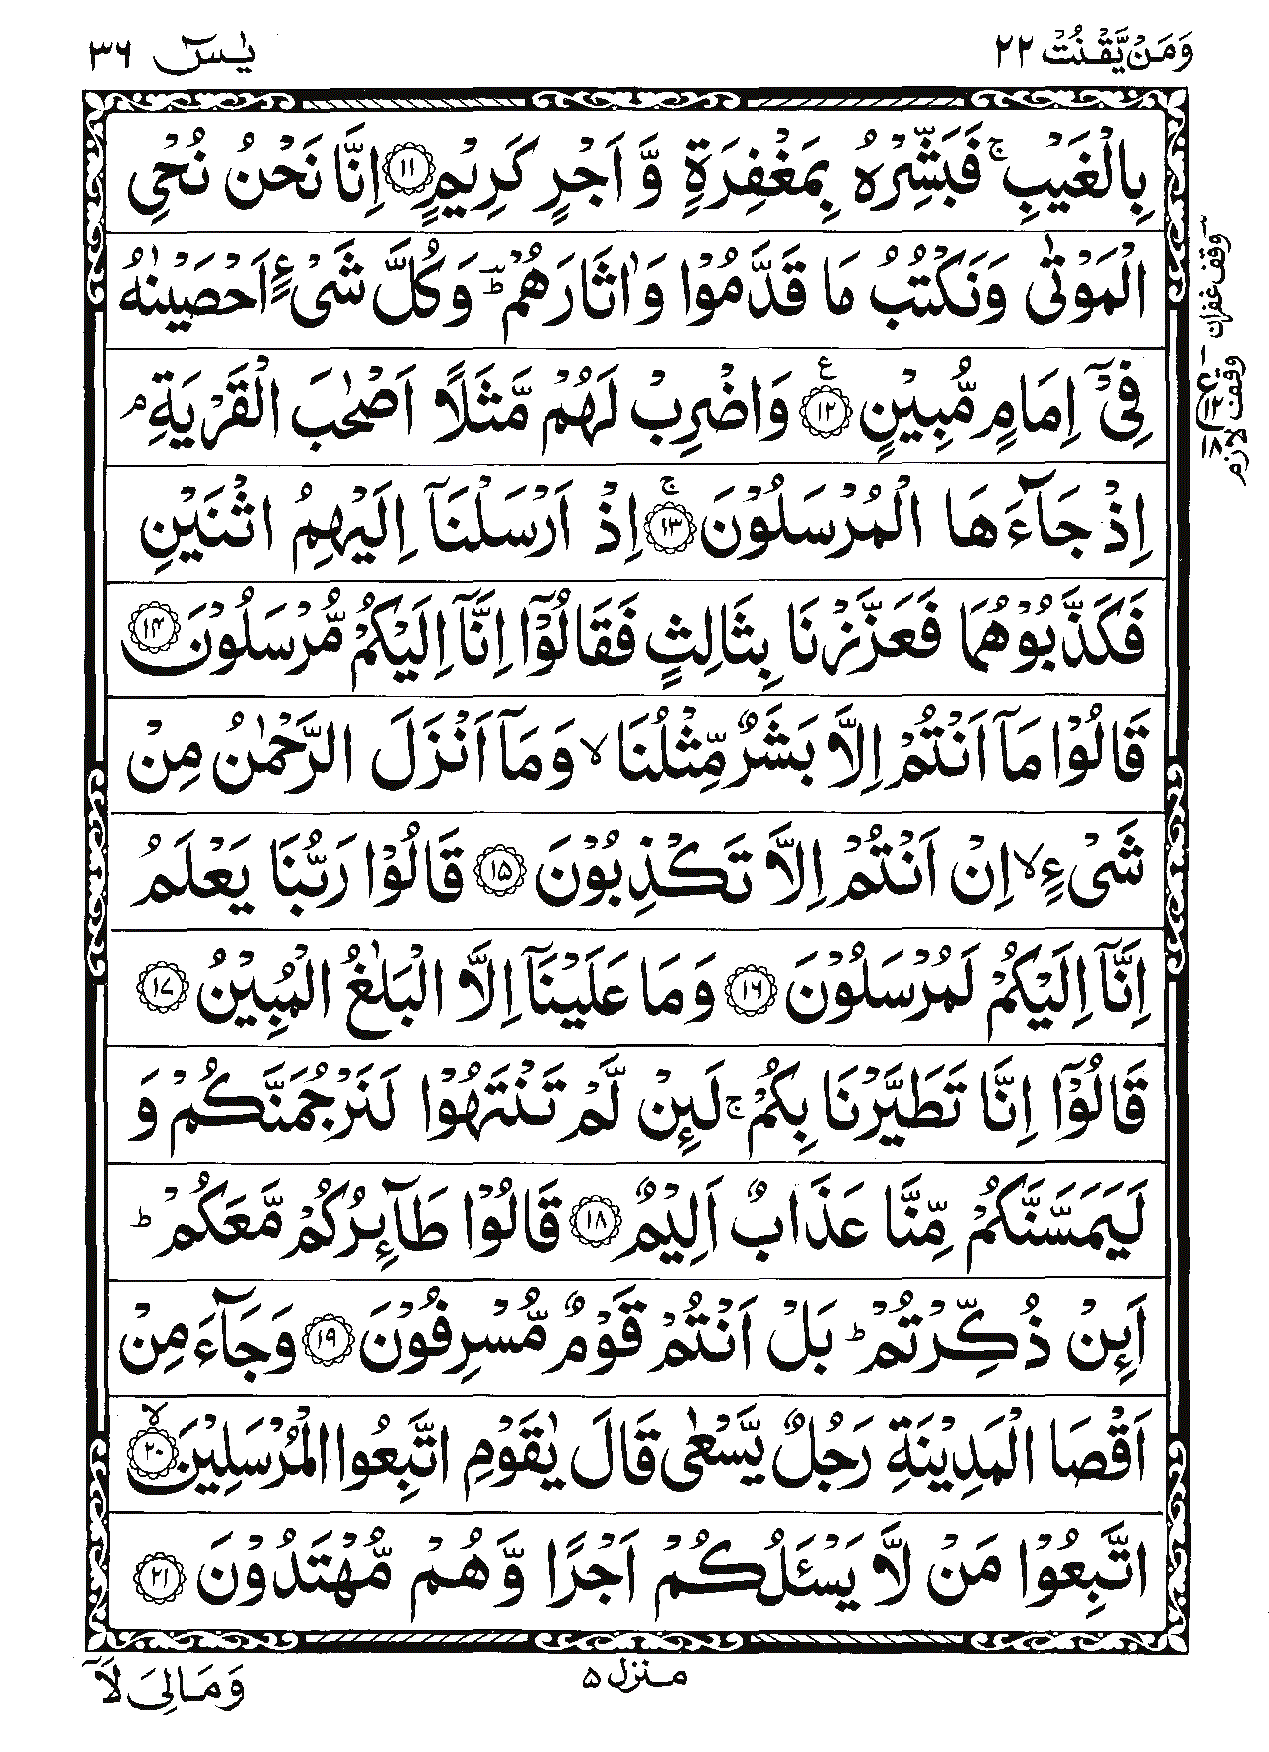 وَمَنْ يَّقْنُتْ ٢٢
يٰسٓ ٣٦
بِالْغَيْبِ ۚ فَبَشِّرْهُ بِمَغْفِرَةٍ وَّ اَجْرٍ كَرِيْمٍ ﴿۱۱﴾ اِنَّا نَحْنُ نُحْيِ
الْمَوْتٰى وَنَكْتُبُ مَا قَدَّمُوْا وَاٰثَارَهُمْ ؕ وَكُلَّ شَىْءٍ اَحْصَيْنٰهُ
فِىْٓ اِمَامٍ مُّبِيْنٍ ﴿۱۲﴾ ع وَاضْرِبْ لَهُمْ مَّثَلًا اَصْحٰبَ الْقَرْيَةِ ۘ
اِذْ جَآءَهَا الْمُرْسَلُوْنَ ۚ ﴿۱۳﴾ اِذْ اَرْسَلْنَآ اِلَيْهِمُ اثْنَيْنِ
فَكَذَّبُوْهُمَا فَعَزَّزْنَا بِثَالِثٍ فَقَالُوْٓا اِنَّآ اِلَيْكُمْ مُّرْسَلُوْنَ ﴿۱۴﴾
قَالُوْا مَآ اَنْتُمْ اِلَّا بَشَرٌ مِّثْلُنَا ۙ وَمَآ اَنْزَلَ الرَّحْمٰنُ مِنْ
شَىْءٍ ۙ اِنْ اَنْتُمْ اِلَّا تَكْذِبُوْنَ ﴿۱۵﴾ قَالُوْا رَبُّنَا يَعْلَمُ
اِنَّآ اِلَيْكُمْ لَمُرْسَلُوْنَ ﴿۱۶﴾ وَمَا عَلَيْنَآ اِلَّا الْبَلٰغُ الْمُبِيْنُ ﴿۱۷﴾
قَالُوْٓا اِنَّا تَطَيَّرْنَا بِكُمْ ۚ لَئِنْ لَّمْ تَنْتَهُوْا لَنَرْجُمَنَّكُمْ وَ
لَيَمَسَّنَّكُمْ مِّنَّا عَذَابٌ اَلِيْمٌ ﴿۱۸﴾ قَالُوْا طَآئِرُكُمْ مَّعَكُمْ ؕ
اَئِنْ ذُكِّرْتُمْ ؕ بَلْ اَنْتُمْ قَوْمٌ مُّسْرِفُوْنَ ﴿۱۹﴾ وَجَآءَ مِنْ
اَقْصَا الْمَدِيْنَةِ رَجُلٌ يَّسْعٰى قَالَ يٰقَوْمِ اتَّبِعُوا الْمُرْسَلِيْنَ ۙ ﴿۲۰﴾
اتَّبِعُوْا مَنْ لَّا يَسْئَلُكُمْ اَجْرًا وَّهُمْ مُّهْتَدُوْنَ ﴿۲۱﴾
وقف غفران
ع ۱ ۱۲ ۱۸
وقف لازم
منزل ۵
وَمَالِىَ لَآ